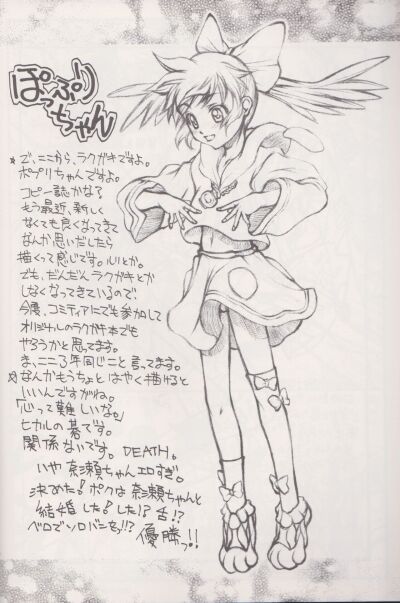 ぽっぷり
っちゃん
★で、ここから、ラクガキですよ。
ポプリちゃんですよ。
コピー誌かな？
もう最近、新しく
なくても良くなってきて
なんか思いだしたら
描くって感じです。ルリとか。
でも、だんだんラクガキとか
しなくなってきているので、
今度、コミティアにでも参加して
オリジナルのラクガキ本でも
やろうかと思ってます。
ま、ここ3年同じこと言ってます。
☆なんかもうちょとはやく描けると
いいんですがね。
「心って難しいな。」
ヒカルの碁です。
関係ないです。DEATH。
いや奈瀬ちゃんエロすぎ。
決めた！ボクは奈瀬ちゃんと
結婚した！した！？舌！？
ベロでソロバンをっ！！？
優勝っ！！